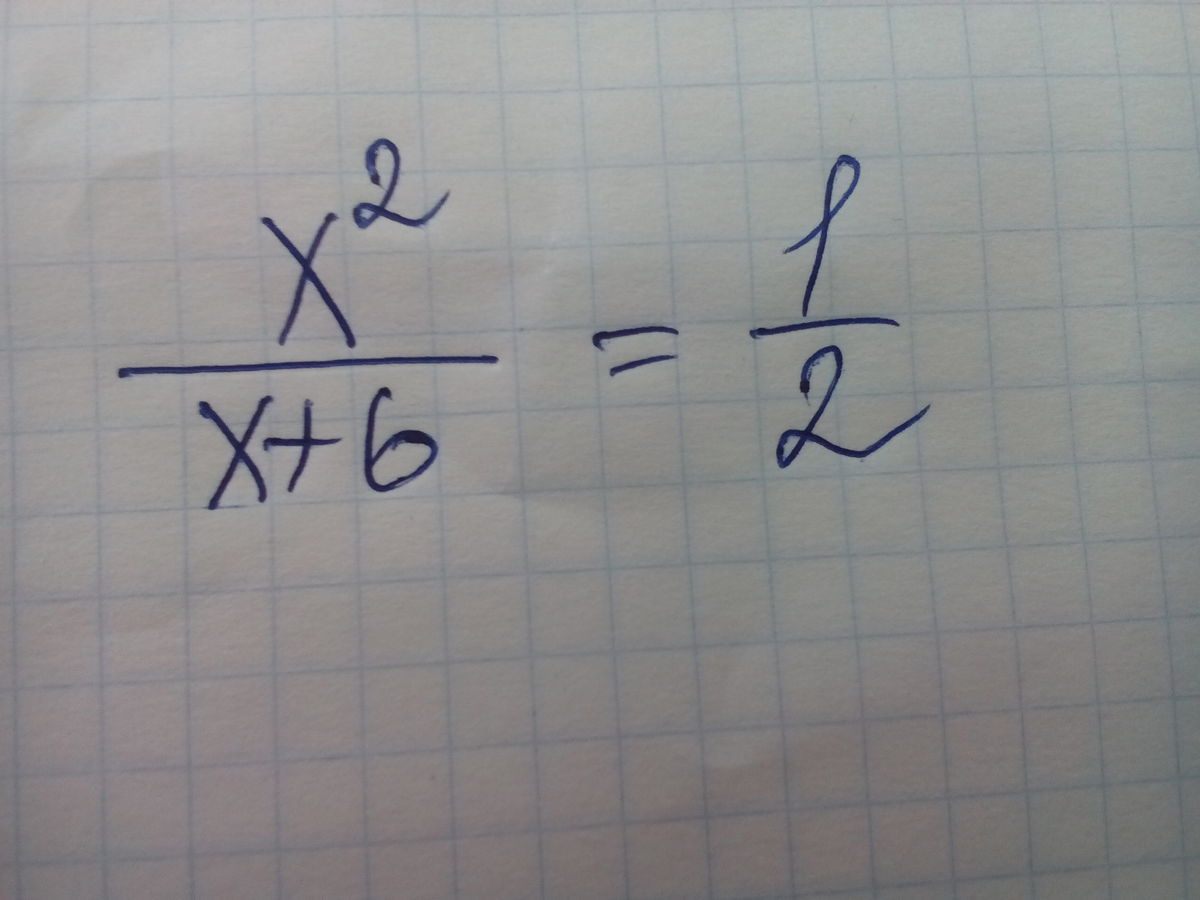 x²/(x+6) = 1/2